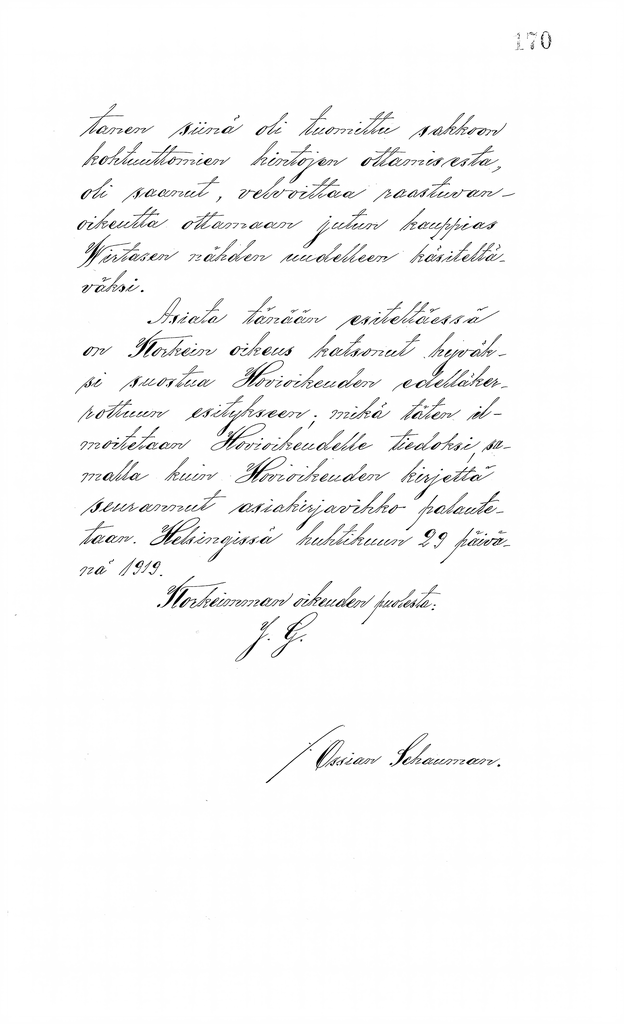 170
tanen siinä oli tuomittu sakkoon
kohtuuttomien hintojen ottamisesta,
oli saanut, velvoittaa raastuvan-
oikeutta ottamaan jutun kauppias
Wirtasen nähden uudelleen käsiteltä-
väksi.
Asiata tänään esiteltäessä
on Korkein oikeus katsonut hyväk-
si suostua Hovioikeuden edelläker-
rottuun esitykseen; mikä täten il-
moitetaan Hovioikeudelle tiedoksi, sa-
malla kuin Hovioikeuden kirjettä
seurannut asiakirjavihko palaute-
taan. Helsingissä huhtikuun 29 päivä-
nä 1919.
Korkeimman oikeuden puolesta:
J. G.
/: Ossian Schauman.